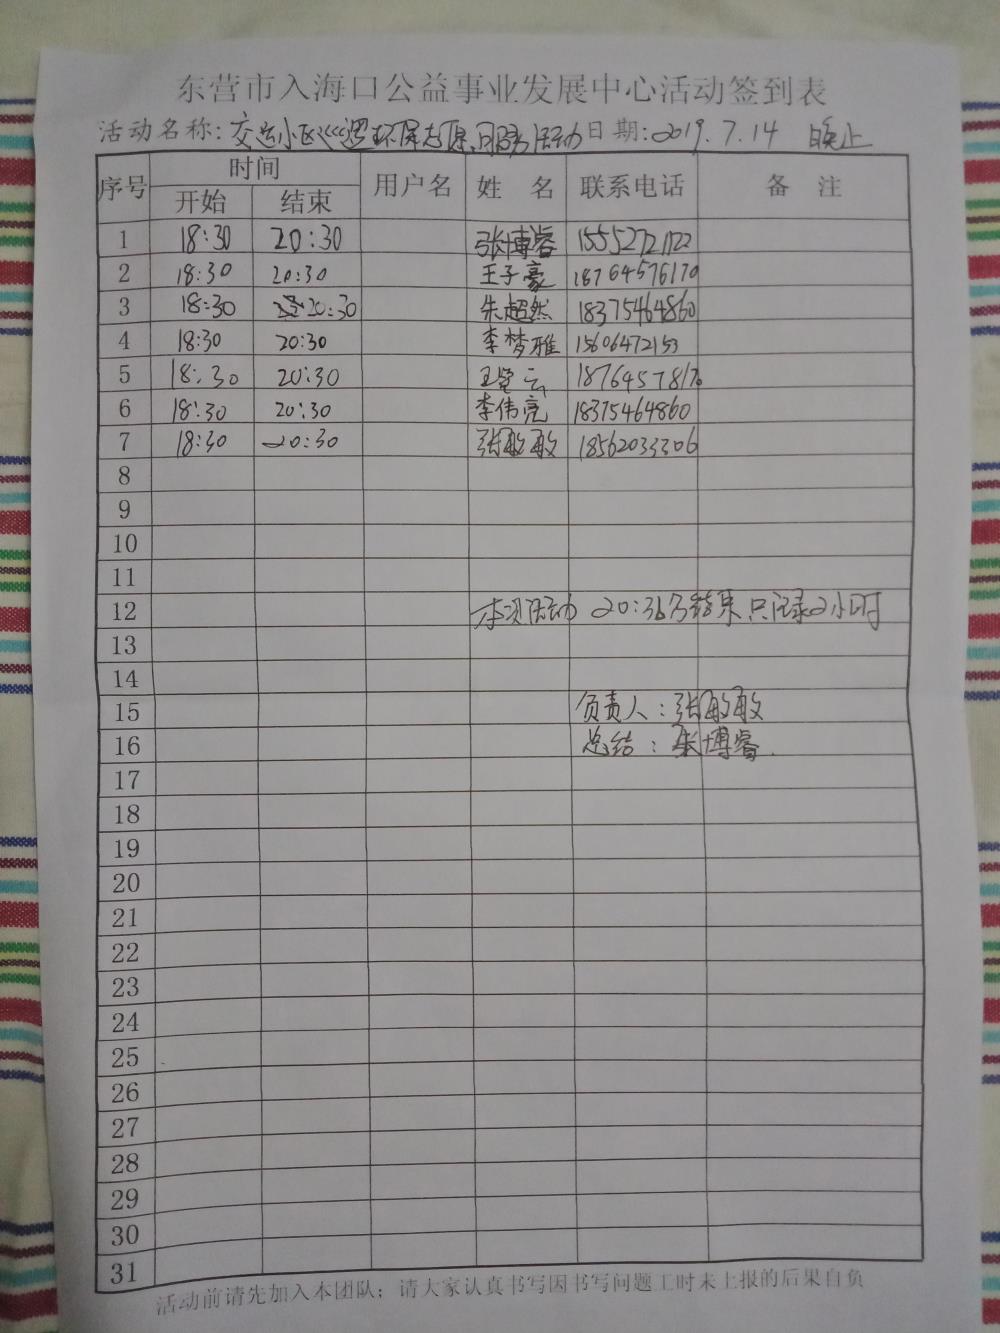 东营市入海口公益事业发展中心活动签到表
活动名称: 交运小区巡逻环保志愿服务活动 日期: 2019.7.14 晚上
序号 时间 用户名 姓 名 联系电话 备 注
开始 结束
1 18:30 20:30 张博睿 15552721122
2 18:30 20:30 王子豪 18764576170
3 18:30 20:30 朱超然 18375464860
4 18:30 20:30 李梦雅 15606472153
5 18:30 20:30 18764578170
6 18:30 20:30 李伟亮 18375464860
7 18:30 20:30 张敏敏 18562033306
8
9
10
11
12 本次活动 20:36分结束只记录2小时
13
14
15 负责人:张敏敏
16 总结:张博睿
17
18
19
20
21
22
23
24
25
26
27
28
29
30
31
活动前请先加入本团队;请大家认真书写因书写问题工时未上报的后果自负